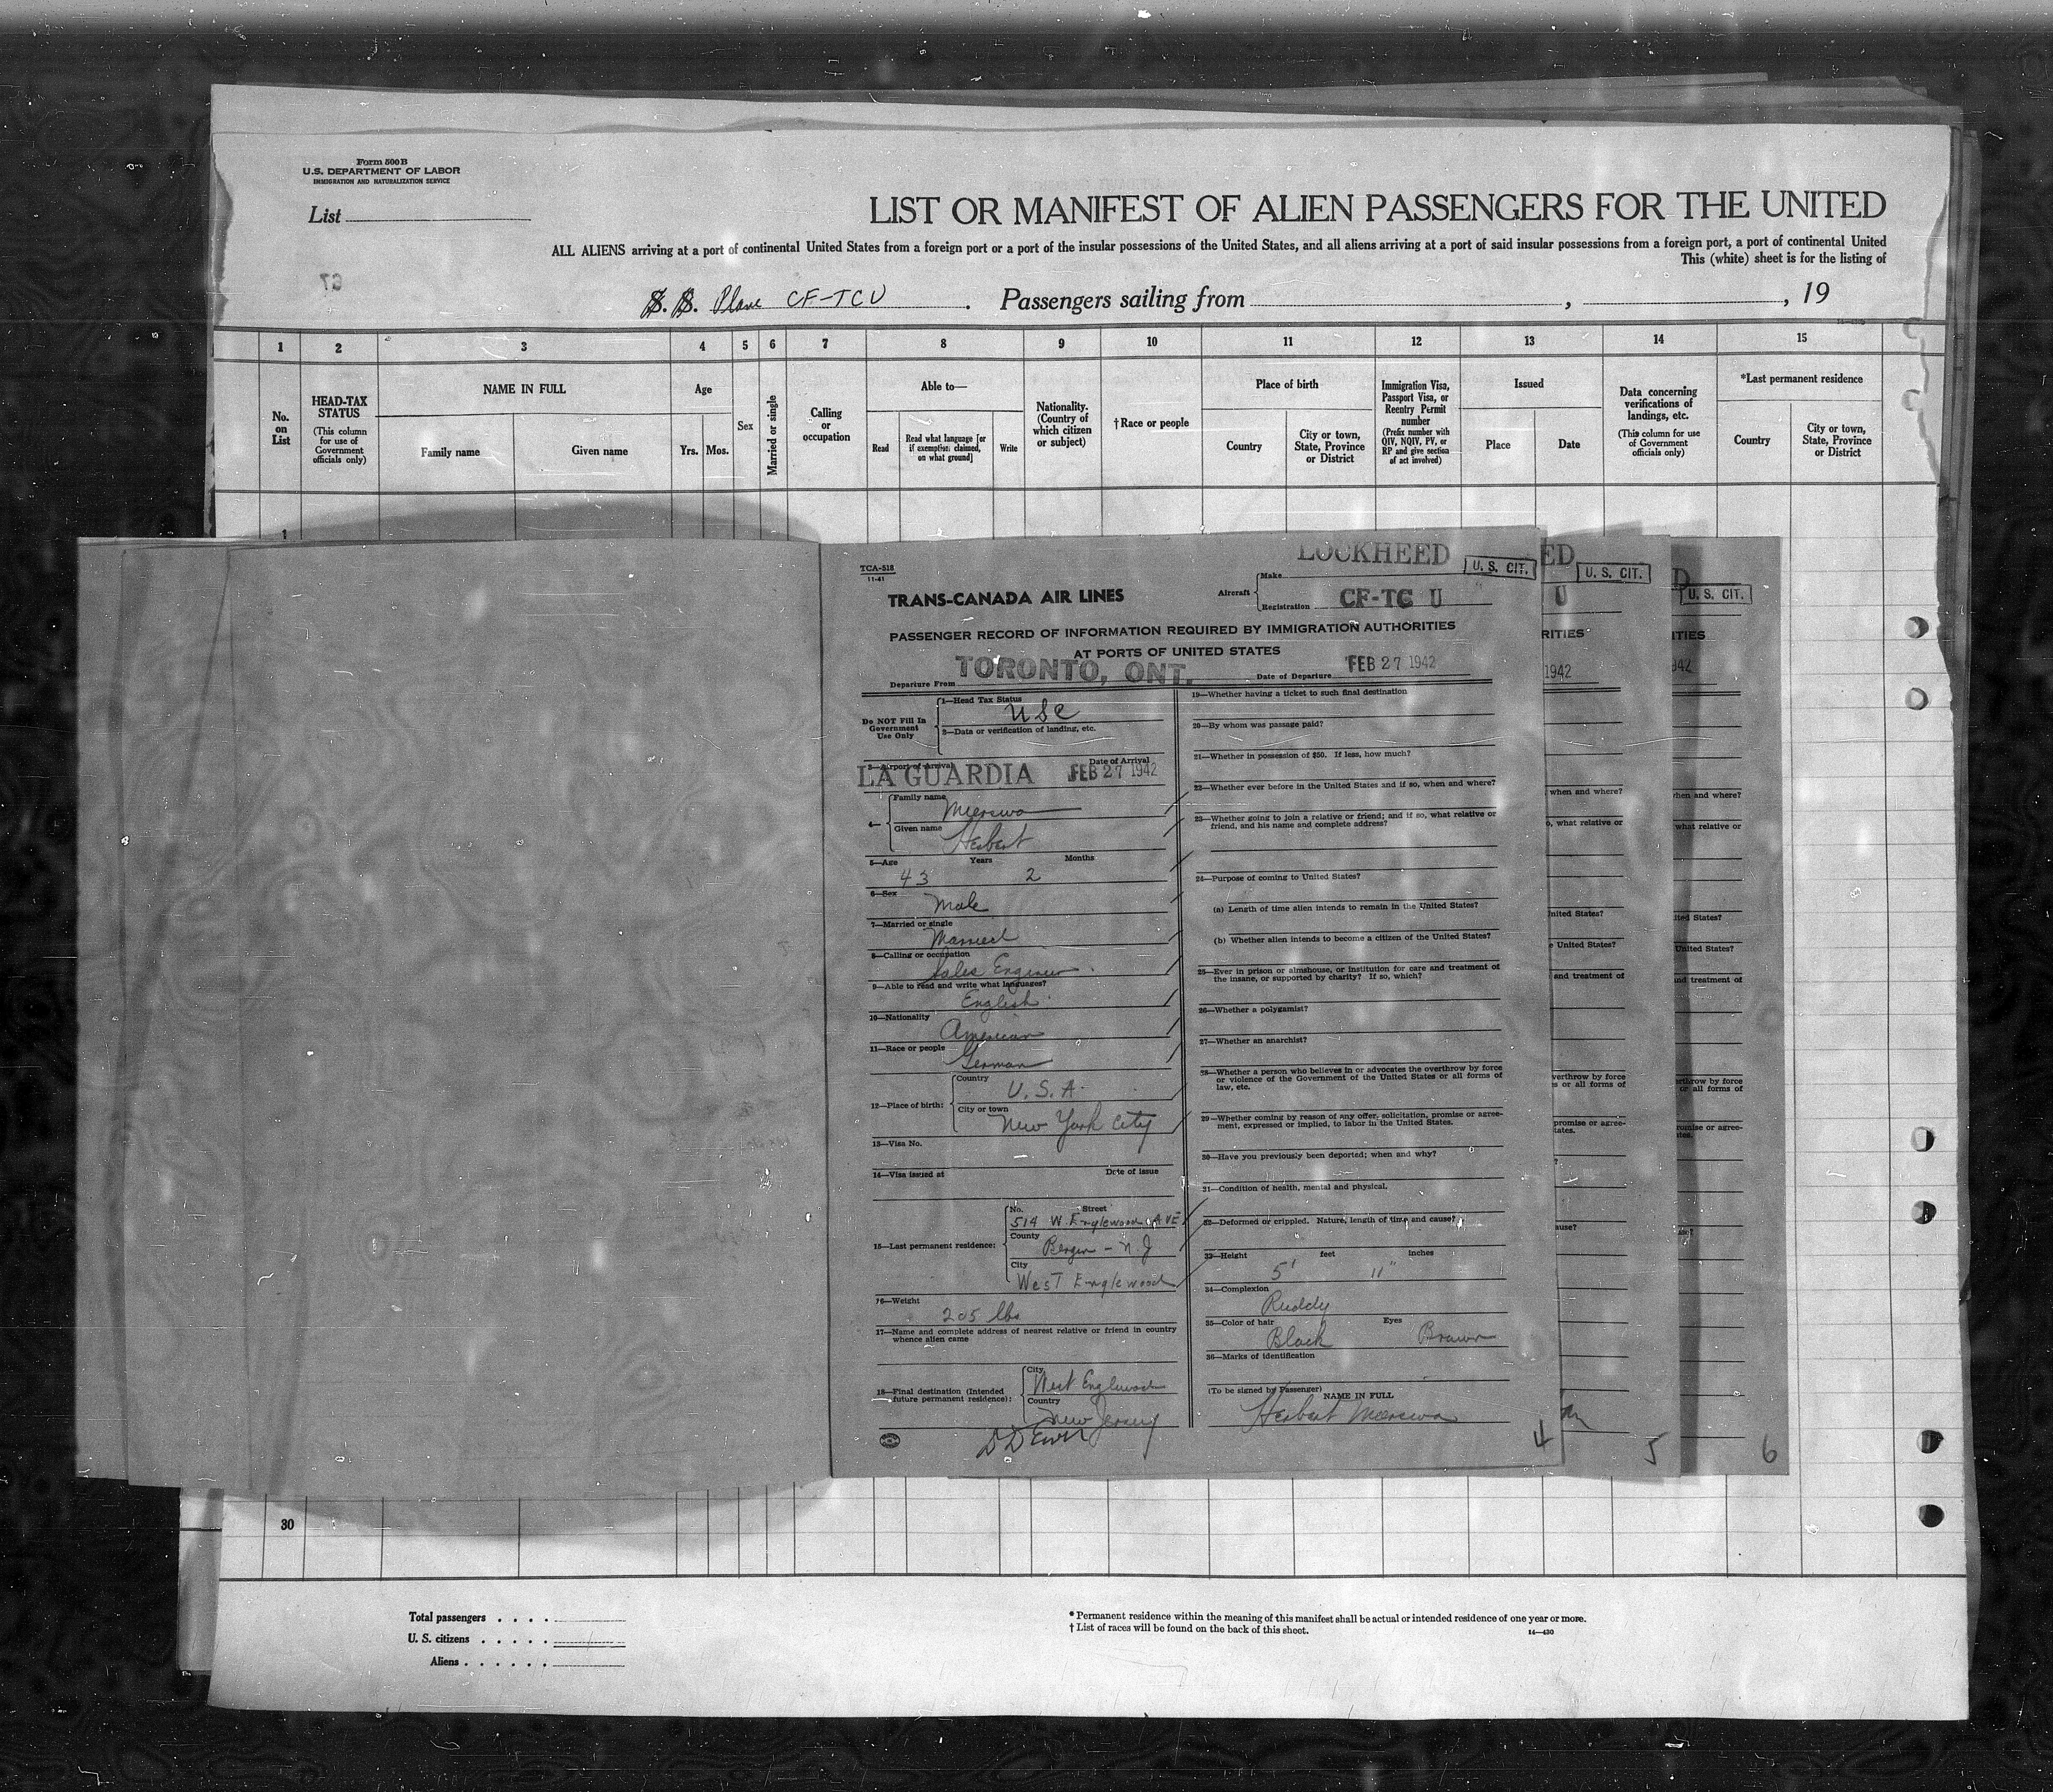 Form 500B
U.S. DEPARTMENT OF LABOR
IMMIGRATION AND NATURALIZATION SERVICE
List
LIST OR MANIFEST OF ALIEN PASSENGERS FOR THE UNITED
ALL ALIENS arriving at a port of continental United States from a foreign port or a port of the insular possessions of the United States, and all aliens arriving at a port of said insular possessions from a foreign port, a port of continental United
This (white) sheet is for the listing of
67
S. S. Plane CF-TCU . Passengers sailing from , , 19
1 2 3 4 5 6 7 8 9 10 11 12 13 14 15
No. on List
HEAD-TAX STATUS (This column for use of Government officials only)
NAME IN FULL
Family name Given name
Age
Yrs. Mos.
Sex
Married or single
Calling or occupation
Able to—
Read Read what language [or if exemption claimed, on what ground] Write
Nationality. (Country of which citizen or subject)
†Race or people
Place of birth
Country City or town, State, Province or District
Immigration Visa, Passport Visa, or Reentry Permit number (Prefix number with QIV, NQIV, PV, or RP and give section of act involved)
Issued
Place Date
Data concerning verifications of landings, etc. (This column for use of Government officials only)
*Last permanent residence
Country City or town, State, Province or District
1
TCA-518
11-41
TRANS-CANADA AIR LINES
Aircraft
Make LOCKHEED
Registration CF-TC U
U. S. CIT.
PASSENGER RECORD OF INFORMATION REQUIRED BY IMMIGRATION AUTHORITIES
AT PORTS OF UNITED STATES
Departure From TORONTO, ONT. Date of Departure FEB 27 1942
Do NOT Fill In Government Use Only
1—Head Tax Status USC
2—Data or verification of landing, etc.
3—Airport of Arrival LA GUARDIA Date of Arrival FEB 27 1942
4— Family name Mierswa
Given name Herbert
5—Age Years 43 Months 2
6—Sex Male
7—Married or single Married
8—Calling or occupation Sales Engineer
9—Able to read and write what languages? English
10—Nationality American
11—Race or people German
12—Place of birth: Country U.S.A.
City or town New York City
13—Visa No.
14—Visa issued at Date of issue
15—Last permanent residence: No. Street 514 W. Englewood AVE
County Bergen - N.J
City West Englewood
16—Weight 205 lbs
17—Name and complete address of nearest relative or friend in country whence alien came
18—Final destination (Intended future permanent residence): City West Englewood
Country New Jersey
19—Whether having a ticket to such final destination
20—By whom was passage paid?
21—Whether in possession of $50. If less, how much?
22—Whether ever before in the United States and if so, when and where?
23—Whether going to join a relative or friend; and if so, what relative or friend, and his name and complete address?
24—Purpose of coming to United States?
(a) Length of time alien intends to remain in the United States?
(b) Whether alien intends to become a citizen of the United States?
25—Ever in prison or almshouse, or institution for care and treatment of the insane, or supported by charity? If so, which?
26—Whether a polygamist?
27—Whether an anarchist?
28—Whether a person who believes in or advocates the overthrow by force or violence of the Government of the United States or all forms of law, etc.
29—Whether coming by reason of any offer, solicitation, promise or agreement, expressed or implied, to labor in the United States.
30—Have you previously been deported; when and why?
31—Condition of health, mental and physical.
32—Deformed or crippled. Nature, length of time and cause?
33—Height 5' feet 11" inches
34—Complexion Ruddy
35—Color of hair Black Eyes Brown
36—Marks of identification
(To be signed by Passenger)
NAME IN FULL
Herbert Mierswa
4
ED
U. S. CIT.
U
RITIES
1942
5
D
U. S. CIT.
ITIES
942
6
30
Total passengers . . . .
U. S. citizens . . . . .
Aliens . . . . . .
* Permanent residence within the meaning of this manifest shall be actual or intended residence of one year or more.
† List of races will be found on the back of this sheet.
14—430